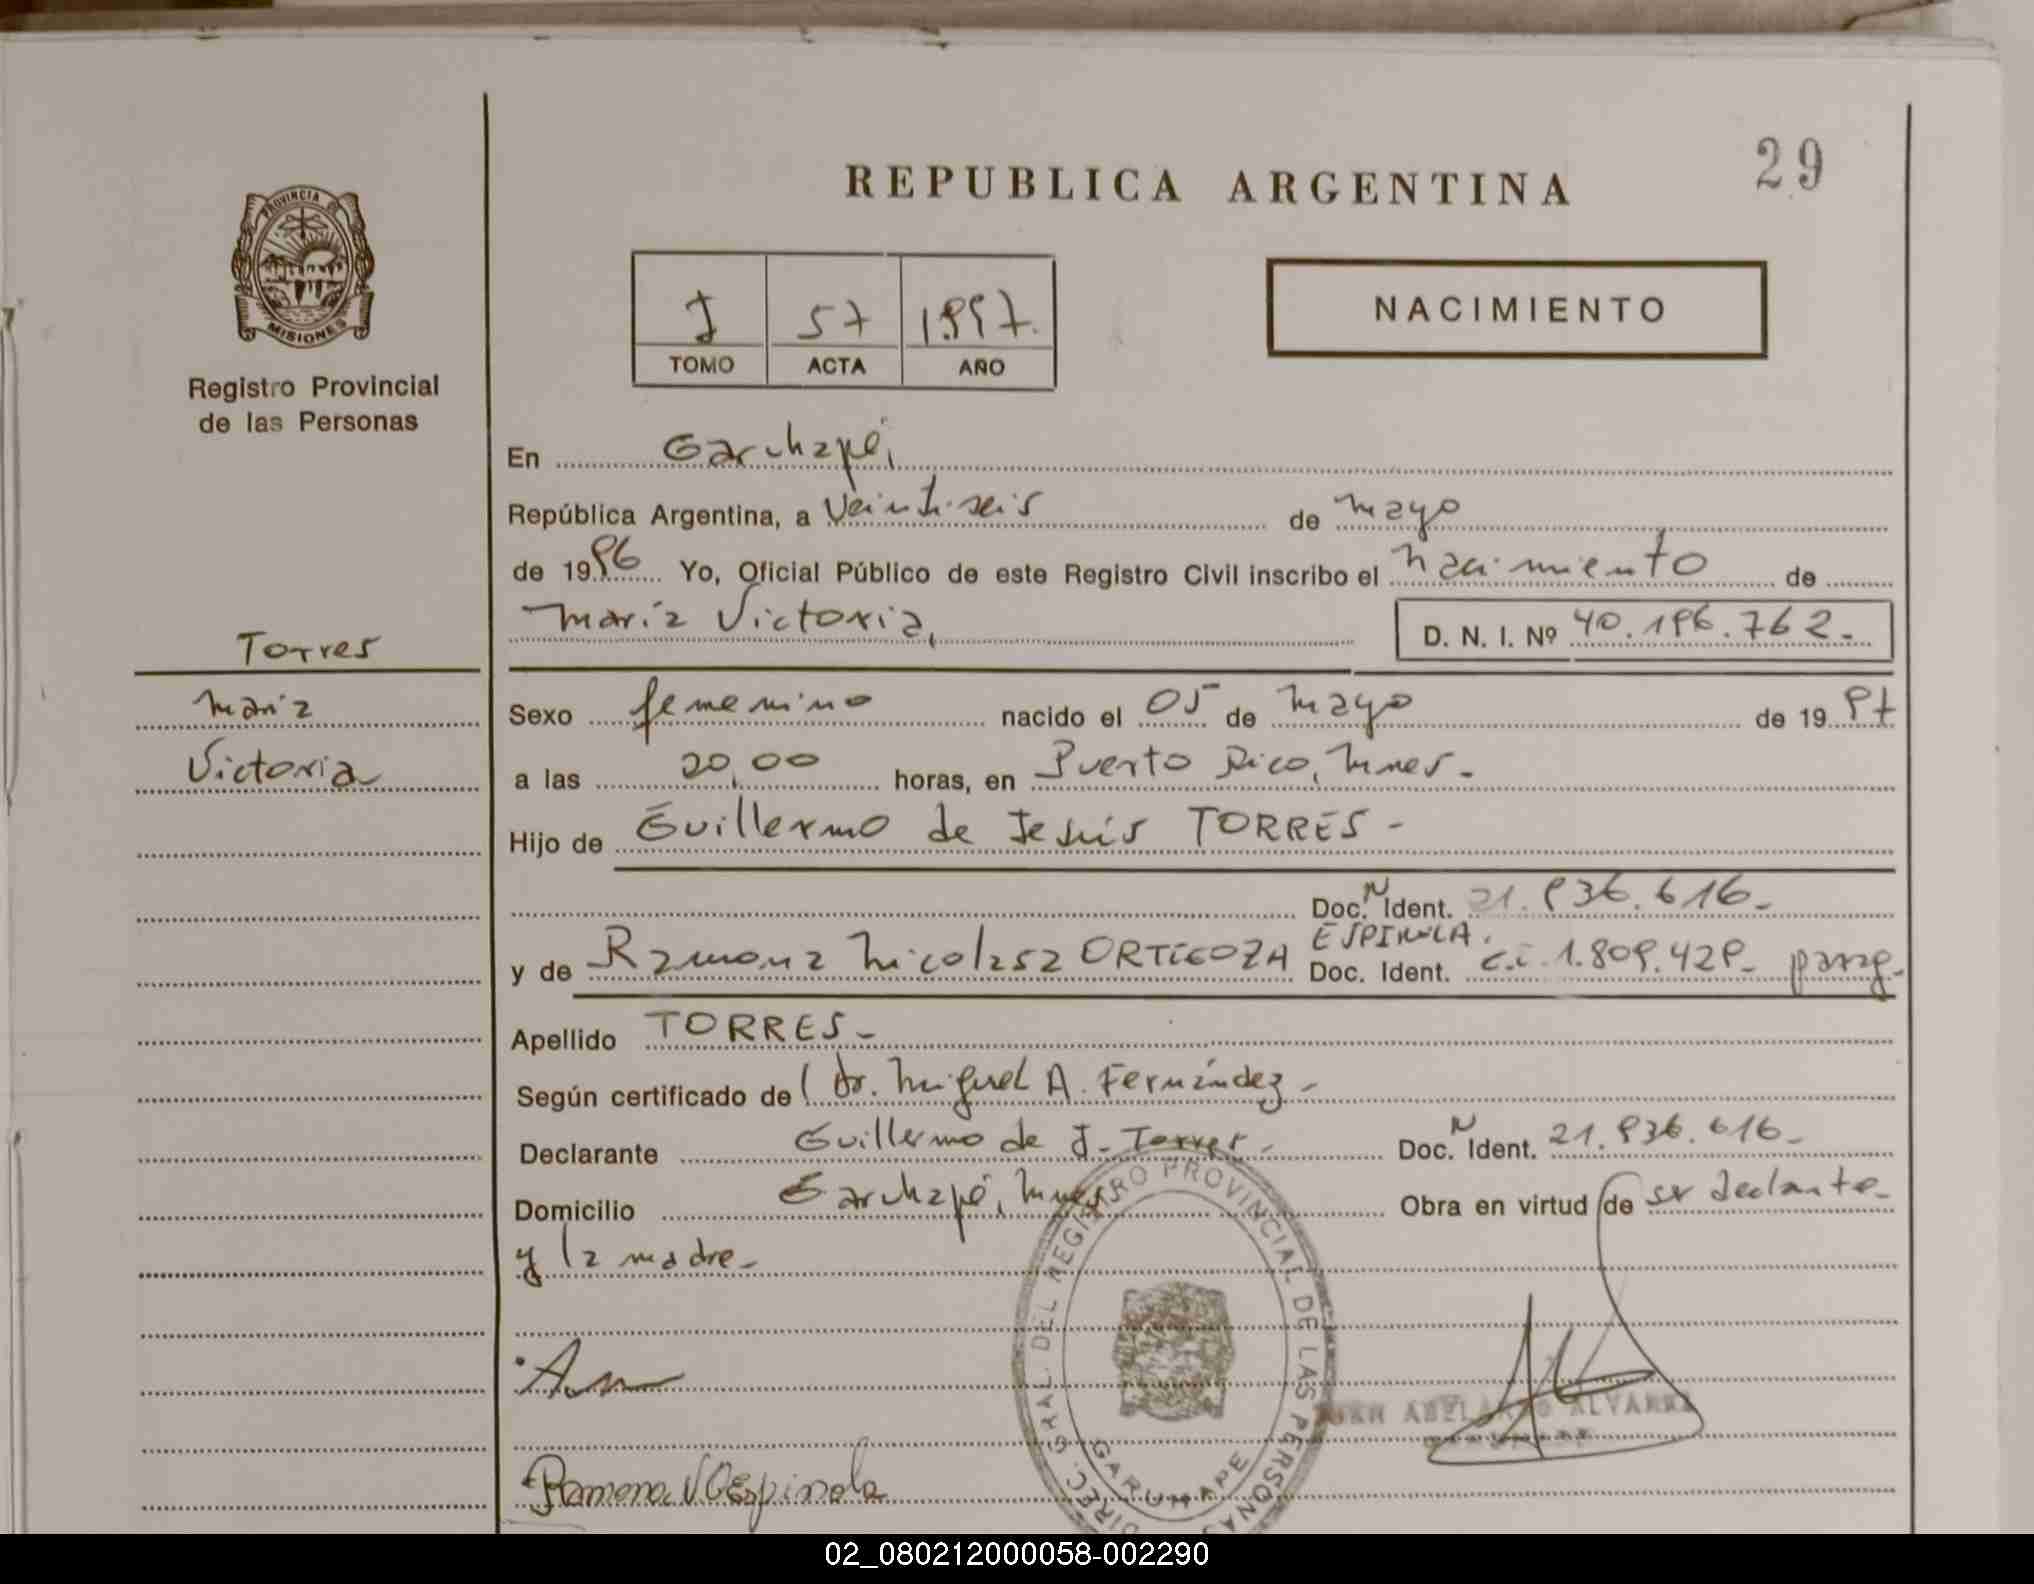 29
REPUBLICA ARGENTINA
PROVINCIA DE
MISIONES
Registro Provincial
de las Personas
I 57 1997.
TOMO ACTA AÑO
NACIMIENTO
En Garuhapé,
República Argentina, a Veintiseis de mayo
de 1996 Yo, Oficial Público de este Registro Civil inscribo el nacimiento de
María Victoria, D. N. I. Nº 40.196.762.-
Torres
María
Victoria
Sexo femenino nacido el 05 de mayo de 1997
a las 20,00 horas, en Puerto Rico, Mnes.-
Hijo de Guillermo de Jesús TORRES -
Doc. N Ident. 21.936.616-
y de Ramona Nicolasa ORTIGOZA ESPINOLA. Doc. Ident. c.i. 1.809.429- parag-
Apellido TORRES-
Según certificado de Dr. Miguel A. Fernández-
Declarante Guillermo de J. Torres- Doc. N Ident. 21.936.616-
Domicilio Garuhapé, Mnes Obra en virtud de ser declante-
y la madre-
DIREC. GRAL. DEL REGISTRO PROVINCIAL DE LAS PERSONAS
GARUHAPE
ABELARDO ALVAREZ
Ramona N O Espinola
02_080212000058-002290